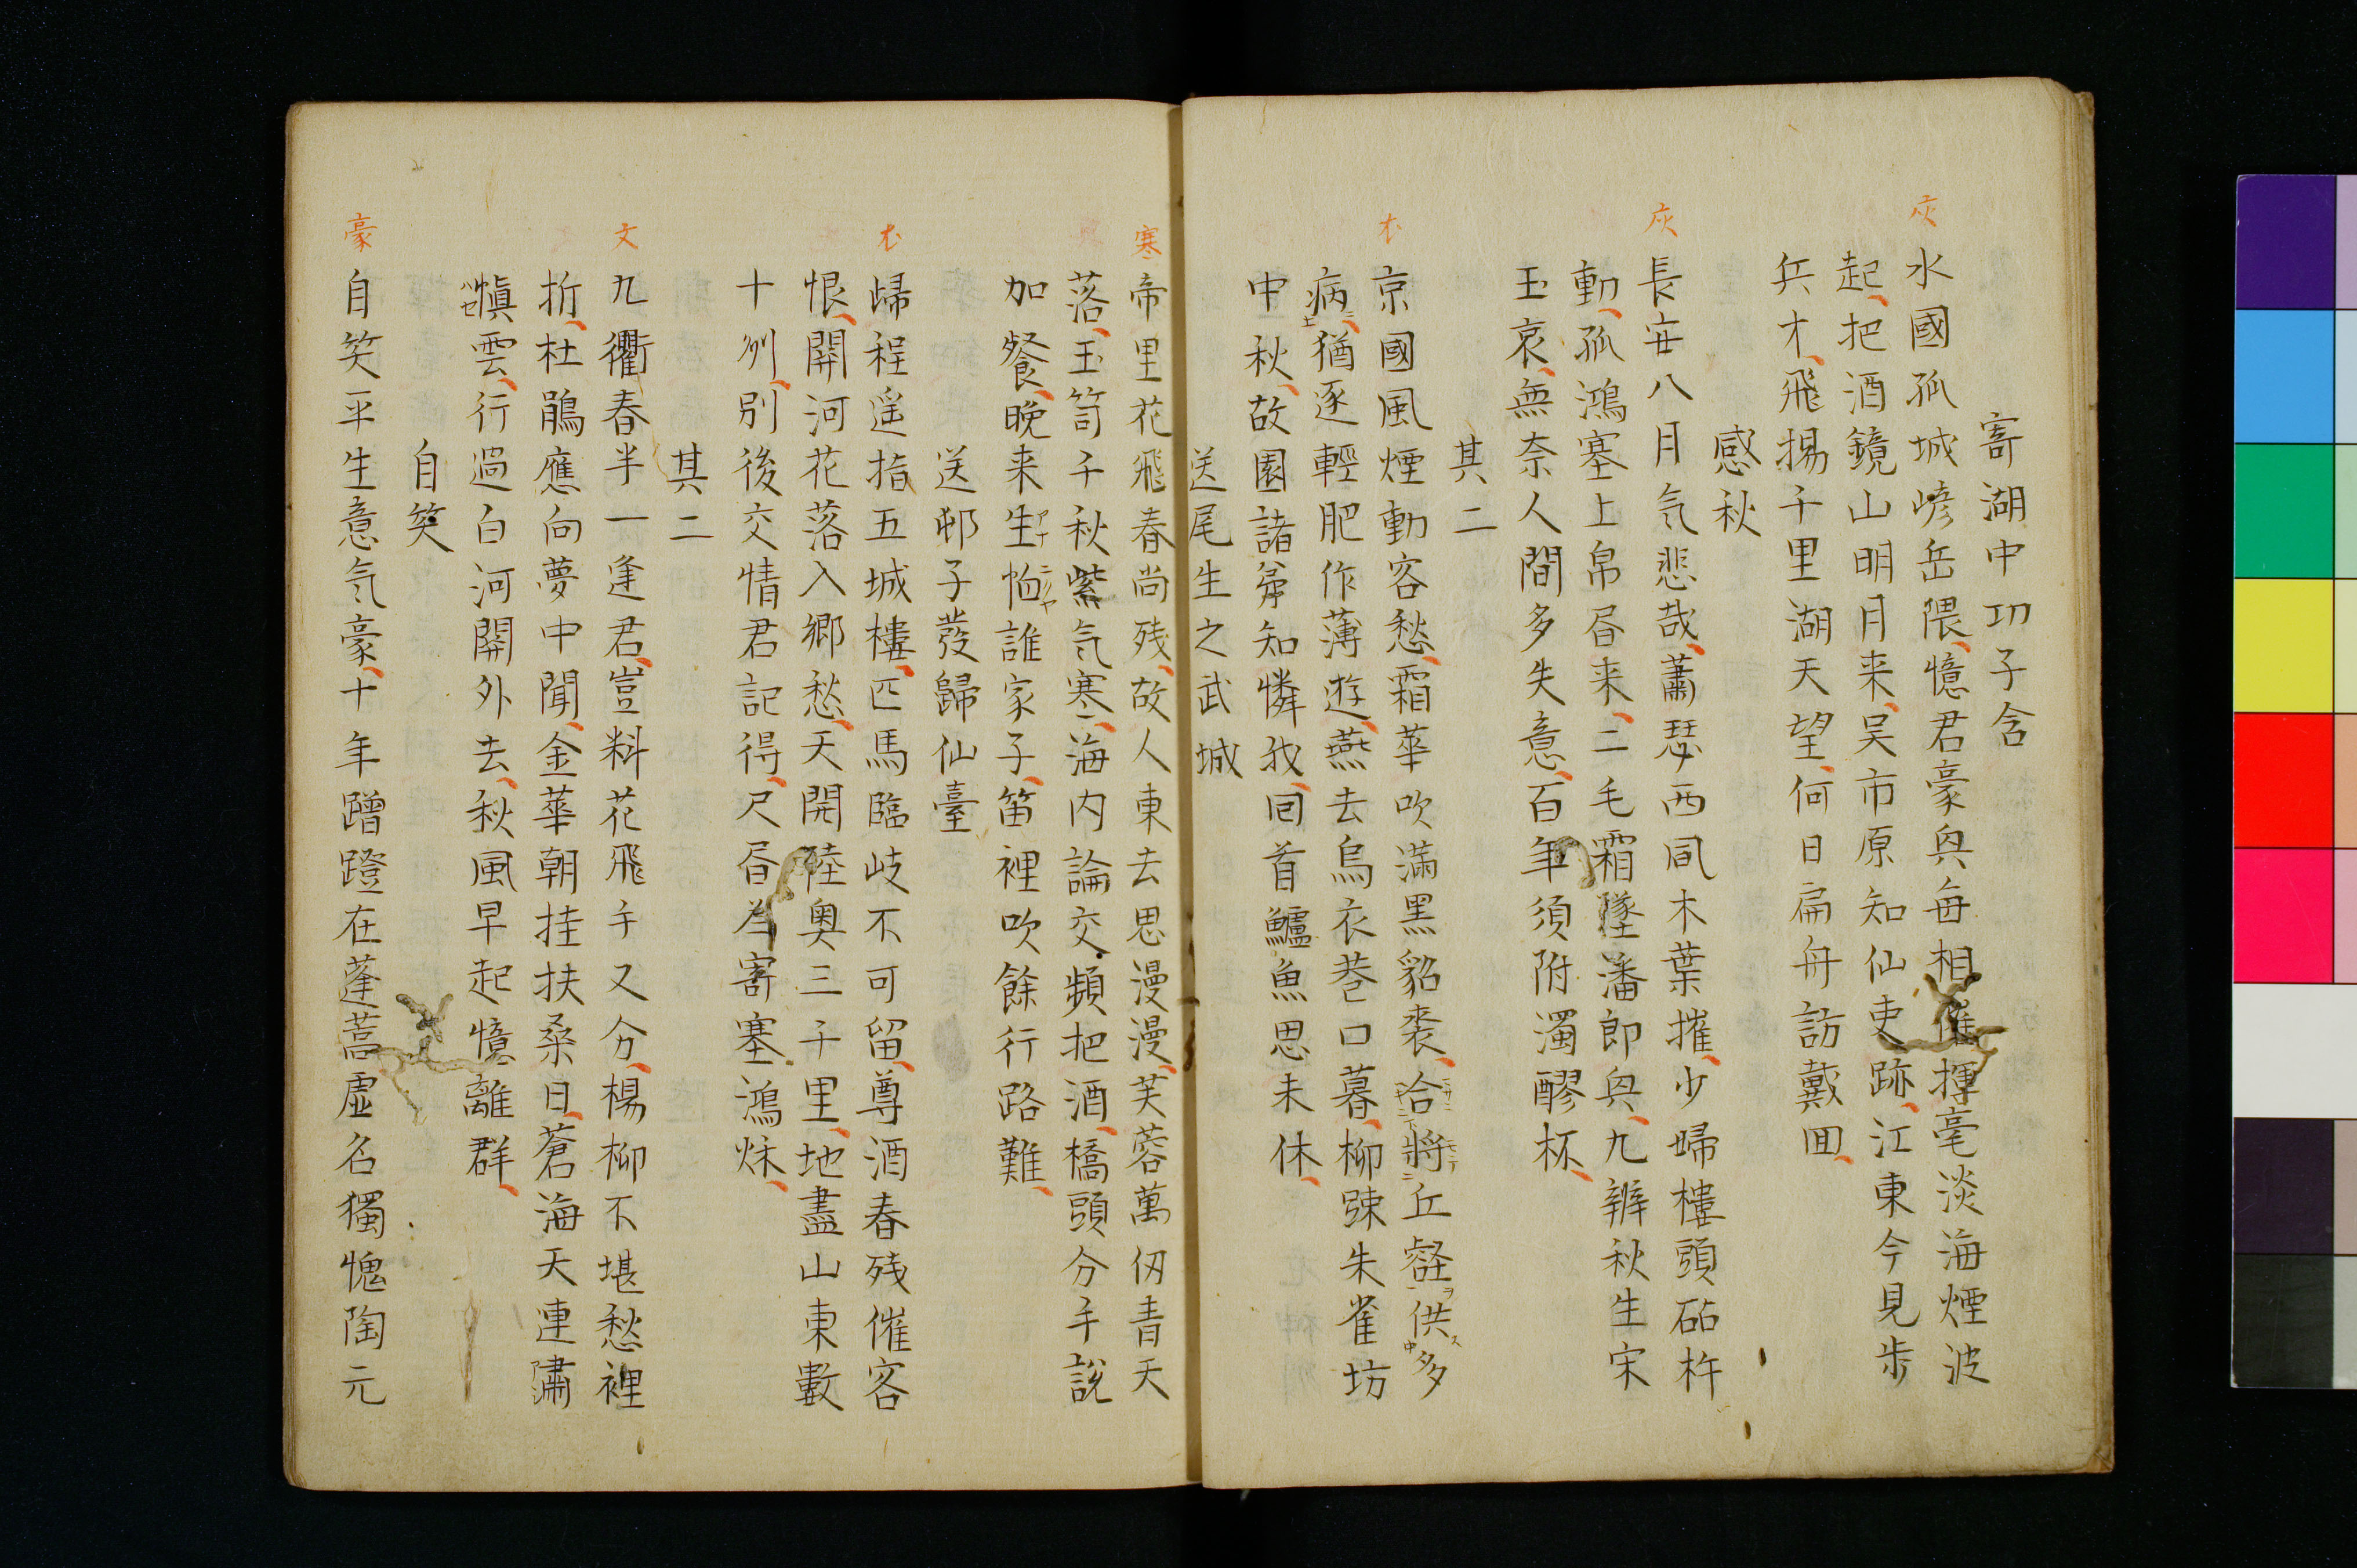 寄湖中功子含
灰
水國孤城嵶岳隈憶君豪興每相催揮毫淡海煙波
起把酒鏡山明月来吴市原知仙吏跡江東今見步
兵才飛揚千里湖天望何日扁舟訪戴回
感秋
灰
長安八月気悲哉蕭瑟西風木葉摧少婦樓頭砧杵
動孤鴻塞上帛昏来二毛霜墜潘郎興九辨秋生宋
玉哀無奈人間多失意百年須附濁醪杯
其二
尤
京國風煙動客愁霜華吹滿黒貂裘洽將丘壑供多
病猶逐輕肥作薄遊燕去烏衣巷口暮柳踈朱雀坊
中秋故園諸弟知憐我回首鱸魚思未休
送尾生之武城
寒
帝里花飛春尚残故人東去思漫漫芙蓉萬仞青天
落玉笥千秋紫気寒海内論交頻把酒橋頭分手説
加餐晩来生恤誰家子笛裡吹餘行路難
送邨子發歸仙臺
尤
歸程遥指五城樓匹馬臨岐不可留尊酒春残催客
恨開河花落入郷愁天開陸奥三千里地盡山東數
十州別後交情君記得尺昏为寄塞鴻秌
其二
文
九衢春半一逢君豈料花飛手又分楊柳不堪愁裡
折杜鵑應向夢中聞金華朝挂扶桑日蒼海天連
愼雲行過白河關外去秋風早起憶離群
自笑
豪
自笑平生意気豪十年蹭蹬在蓬蒿虚名獨愧陶元